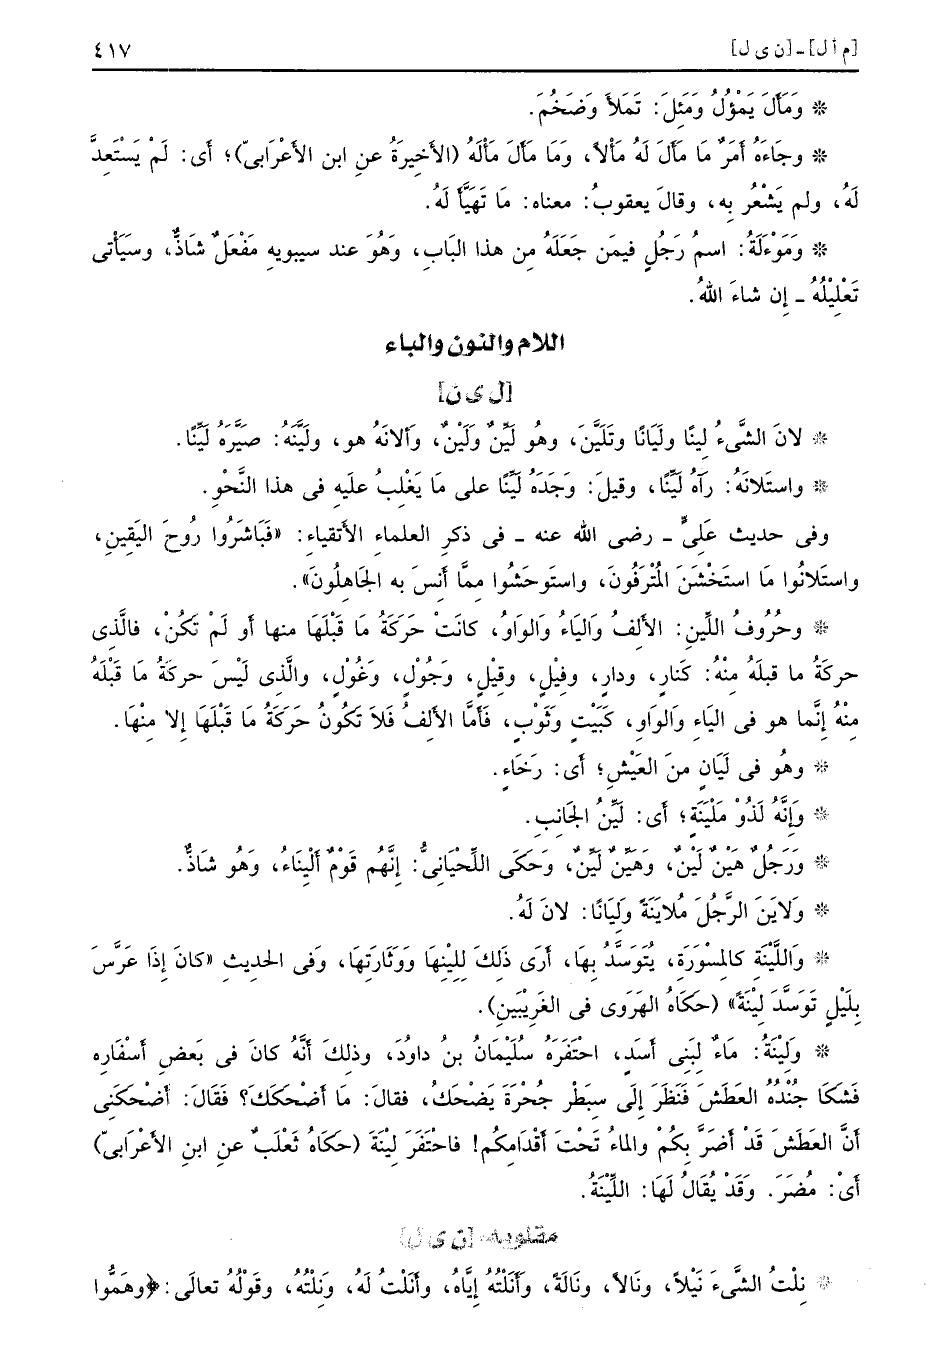 [م أ ل] ـ [ن ى ل] ٤١٧
* وَمَأَلَ يَمْؤُلُ وَمَئِلَ: تَمَلأَ وَضَخُمَ.
* وجَاءَهُ أَمرٌ مَا مَأَلَ لَهُ مَأْلاً، وَمَا مَأَلَ مَأْلَهُ (الأخيرَةُ عن ابن الأعْرَابىّ)؛ أى: لَمْ يَسْتَعِدَّ
لَهُ، ولم يَشْعُر به، وقالَ يعقوبُ: معناه: مَا تَهَيَّأَ لَهُ.
* وَمَوْءَلَةُ: اسمُ رَجُلٍ فيمَن جَعَلَهُ مِن هذا البَابِ، وَهُوَ عند سيبويه مَفْعَلٌ شَاذٌّ، وسيَأْتى
تَعْلِيْلُهُ ـ إن شاءَ اللهُ.
اللام والنون والياء
[ل ى ن]
* لانَ الشَّىءُ لينًا ولَيَانًا وتَلَيَّنَ، وهُو لَيِّنٌ ولَيْنٌ، وأَلانَهُ هو، وليَّنَهُ: صيَّرَهُ لَيِّنًا.
* واستَلانَهُ: رآهُ لَيِّنًا، وقيلَ: وَجَدَهُ لَيِّنًا على مَا يَغْلِبُ عليَهِ فى هذا النَّحْوِ.
وفى حديث عَلىٍّ ـ رضى الله عنه ـ فى ذكرِ العلماءِ الأتقياءِ: «فَبَاشَرُوا رُوحَ اليَقِينِ،
واستَلانُوا مَا استَخْشَنَ المُتْرَفُونَ، واستَوحَشُوا مِمَّا أَنِسَ به الجَاهلُونَ».
* وحُرُوفُ اللِّينِ: الألفُ وَاليَاءُ وَالوَاوُ، كانَتْ حَرَكَةُ مَا قَبْلَهَا منها أو لَمْ تَكُنْ، فالَّذى
حركَةُ ما قبلَهُ مِنْهُ: كَنارٍ، ودارٍ، وفيْلٍ، وقيْلٍ، وجُوْلٍ، وَغُوْلٍ، والَّذى لَيْسَ حركةُ مَا قبلَهُ
مِنْهُ إنَّما هو فى اليَاءِ وَالوَاوِ، كَبَيْتٍ وَثَوْبٍ، فَأَمَّا الألفُ فَلاَ تَكُونُ حَرَكَةُ مَا قَبْلَهَا إلا مِنْهَا.
* وهُو فى لَيَانٍ منَ العَيْشِ؛ أى: رَخَاءٍ.
* وَإنَّهُ لَذُوْ مَلْيَنَةٍ؛ أى: لَيِّنُ الجَانِبِ.
* وَرَجُلٌ هَيْنٌ لَيْنٌ، وَهَيِّنٌ لَيِّنٌ، وَحَكَى اللِّحيَانىُّ: إنَّهُم قَوْمٌ أَلْيِنَاءُ، وَهُو شَاذٌّ.
* وَلايَنَ الرَّجُلَ مُلايَنَةً وَلِيَانًا: لانَ لَهُ.
* وَاللَّيْنَة كالمِسْوَرَةِ، يُتَوَسَّدُ بهَا، أرَى ذَلكَ لِلِيْنِهَا وَوَثَارَتِهَا، وفى الحديثِ «كانَ إذَا عَرَّسَ
بِلَيْلٍ تَوَسَّدَ لِيْنَةً» (حَكَاهُ الهَرَوى فى الغَرِيْبَينِ).
* ولِيْنَةُ: مَاءٌ لِبَنِى أَسَدٍ، احتَفَرَهُ سُلَيْمَانُ بنُ داودَ، وذلكَ أنَّهُ كانَ فى بَعضِ أسْفَارِه
فَشكَا جُنْدُهُ العَطَشَ فَنَظَرَ إلَى سِبَطْرٍ جُحْرَةَ يَضْحَكُ، فقالَ: مَا أضْحكَكَ؟ فَقَالَ: أضْحكَنى
أنَّ العَطَشَ قَدْ أضَرَّ بِكُمْ والماءُ تَحْتَ أقْدَامِكُم! فاحْتَفَرَ لِيْنَةَ (حكَاهُ ثَعْلَبٌ عن ابنِ الأعْرابى)
أىْ: مُضِرَ. وَقَدْ يُقَالُ لَهَا: اللِّيْنَةُ.
مقلوبه: [ن ى ل]
* نِلْتُ الشَّىءَ نَيْلاً، ونَالاً، ونَالَةً، وَأَنَلْتُهُ إيَّاهُ، وأَنَلْتُ لَهُ، وَنِلْتُهُ، وقَوْلُهُ تعالَى: ﴿وهَمُّوا